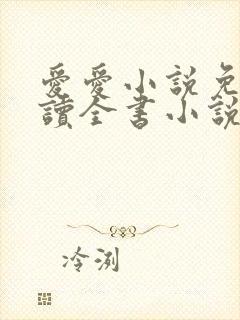 愛愛小說免
讀全書小說
冷洌